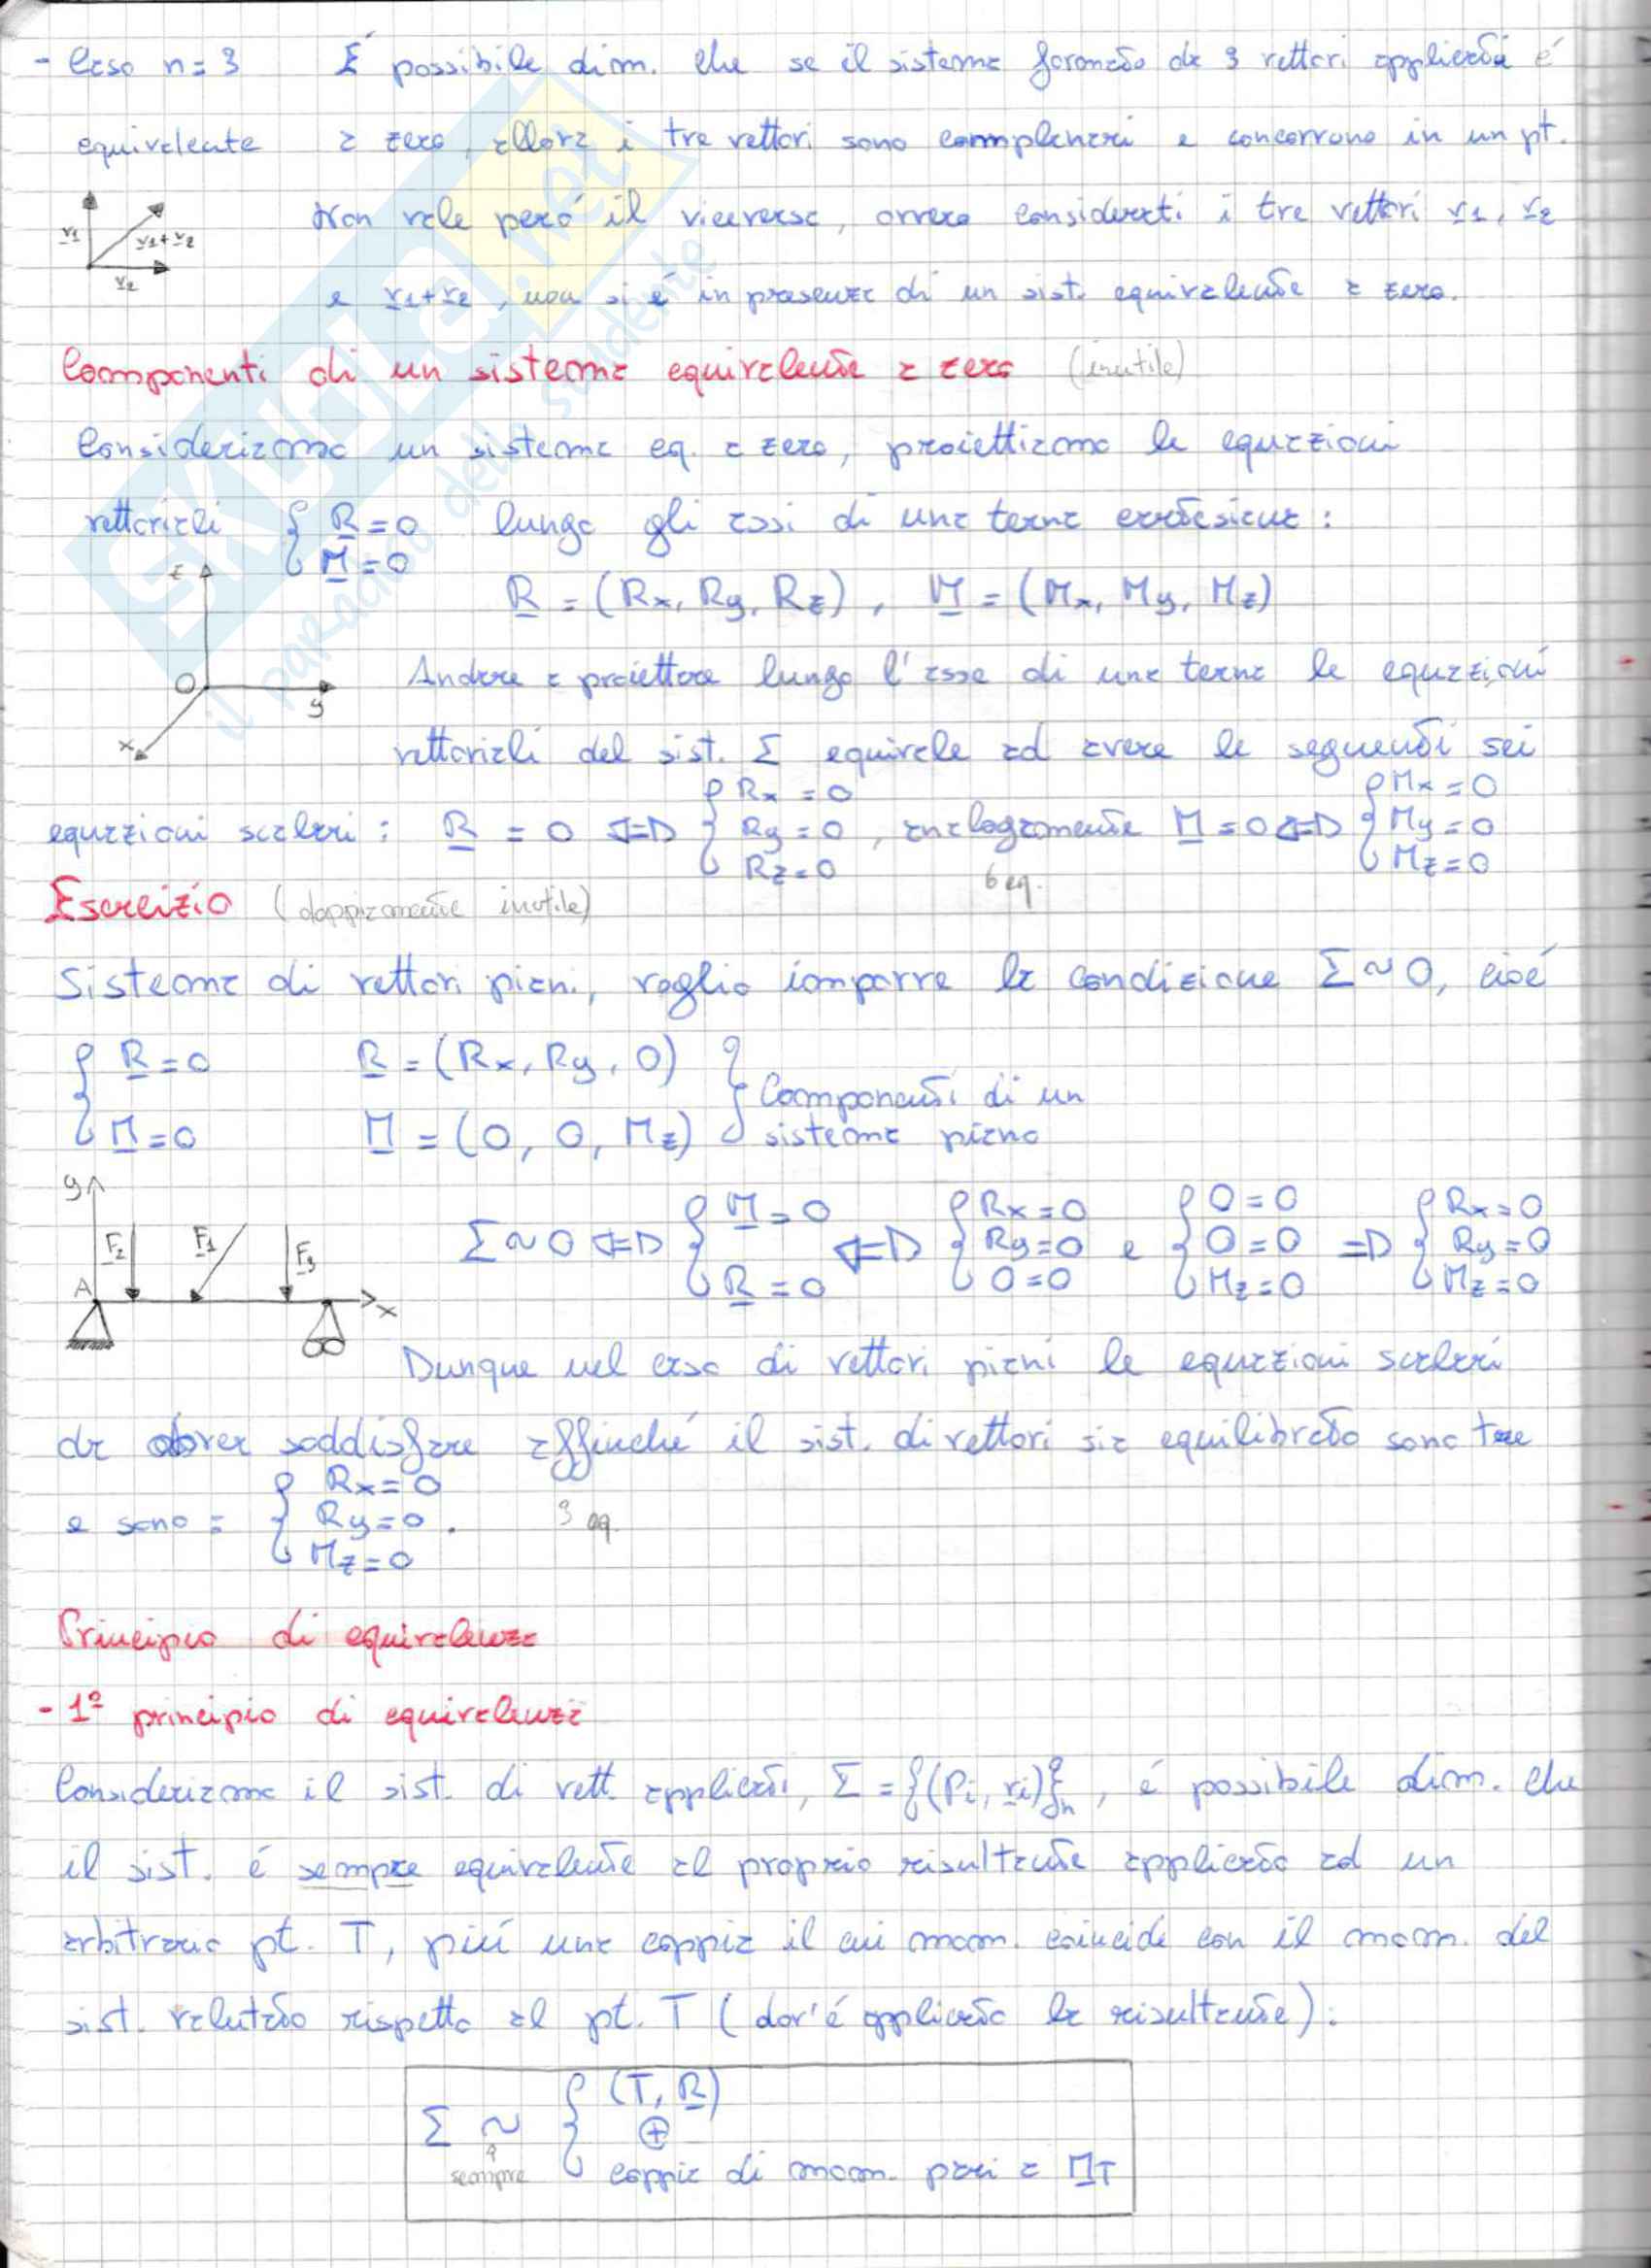 - Caso n=3 É possibile dim. che se il sistema formato da 3 vettori applicati é
equivalente a zero, allora i tre vettori sono complanari e concorrono in un pt.
Non vale peró il viceversa, ovvero considerati i tre vettori v1, v2
v1 v1+v2 v2
e v1+v2, non si é in presenza di un sist. equivalente a zero.
Componenti di un sistema equivalente a zero (inutile)
Consideriamo un sistema eq. a zero, proiettiamo le equazioni
vettoriali { R=0 lungo gli assi di una terna cartesiana:
M=0
z
R = (Rx, Ry, Rz), M = (Mx, My, Mz)
Andare a proiettare lungo l'asse di una terna le equazioni
O y
x
vettoriali del sist. Σ equivale ad avere le seguenti sei
equazioni scalari: R = 0 <=> { Rx = 0 Ry = 0 Rz = 0, analogamente M = 0 <=> { Mx = 0 My = 0 Mz = 0
6 eq.
Esercizio (doppiamente inutile)
Sistema di vettori piani, voglio imporre la condizione Σ ~ 0, cioé
{ R=0 R = (Rx, Ry, 0) } Componenti di un
M=0 M = (0, 0, Mz) sistema piano
y F2 F1 F3 A x
Σ ~ 0 <=> { M=0 R=0 <=> { Rx=0 Ry=0 0=0 e { 0=0 0=0 Mz=0 => { Rx=0 Ry=0 Mz=0
Dunque nel caso di vettori piani le equazioni scalari
da dover soddisfare affinché il sist. di vettori sia equilibrato sono tre
e sono: { Rx=0 Ry=0 Mz=0 . 3 eq.
Principio di equivalenza
- 1º principio di equivalenza
Consideriamo il sist. di vett. applicati, Σ = {(Pi, vi)}n, é possibile dim. che
il sist. é sempre equivalente al proprio risultante applicato ad un
arbitrario pt. T, piú una coppia il cui mom. coincide con il mom. del
sist. valutato rispetto al pt. T (dov'é applicato la risultante):
Σ ~ { (T, R)
⊕
sempre coppia di mom. pari a MT
SKUOLA.net
il paradiso dello studente